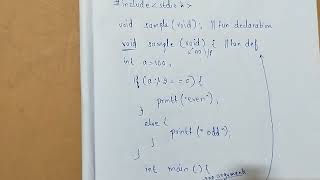 #include<stdio.h>
void sample(void); //fun declaration
void sample (void) { //fun def
int a=100;
if (a%2==0) {
printf("even");
}
else {
printf("odd");
}
}
int main () {